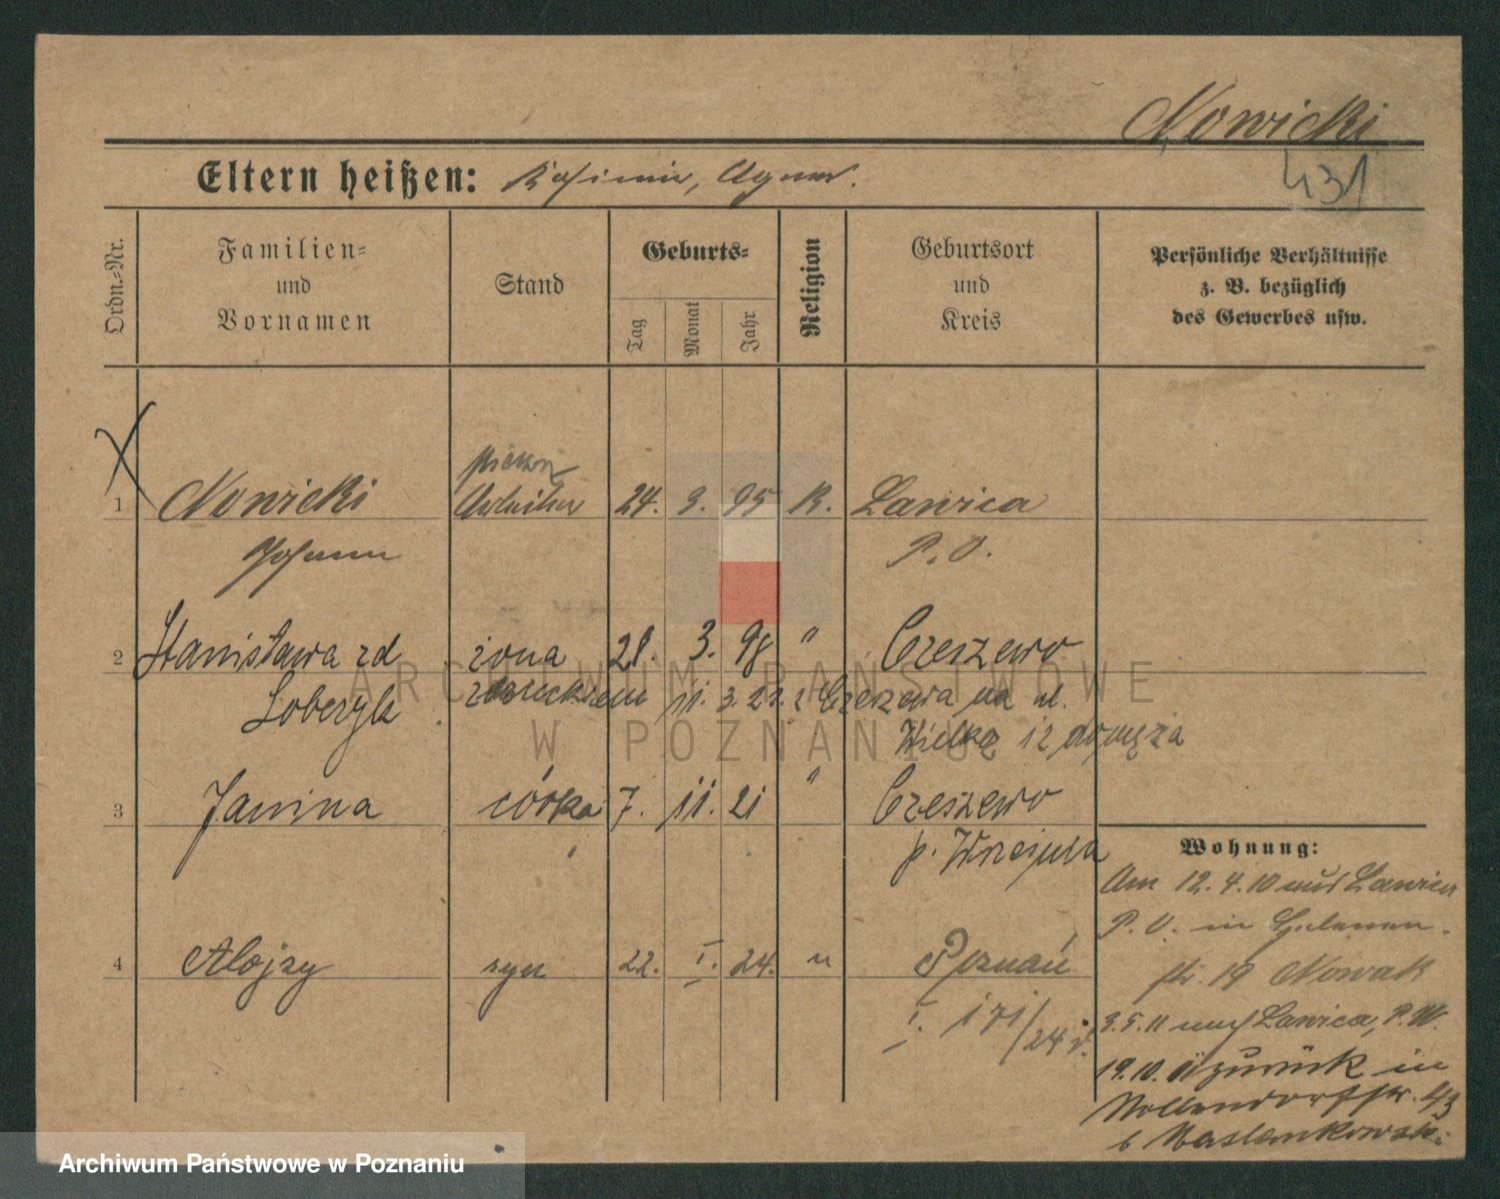 Nowicki
431
Eltern heißen: Kasimir, Agnes.
Ordn.-Nr.
Familien-
und
Vornamen
Stand
Geburts-
Tag
Monat
Jahr
Religion
Geburtsort
und
Kreis
Persönliche Verhältnisse
z. B. bezüglich
des Gewerbes usw.
1 Nowicki Arbeiter 24. 9. 95 K. Lawica
Johann P. O.
2 Stanisława zd żona 28. 3. 98 " Czeszewo
Loberzyk z dzieckiem 11. 3. 22. z Czeszewa na ul.
Wielką 12 do męża
3 Janina córka 7. 11. 21 " Czeszewo
p. Września
4 Alojzy syn 22. I. 24. " Poznań
I. 171/24
Wohnung:
Am 12. 4. 10 aus Lawica
P. O. in
str. 19 Nowak
3. 5. 11 nach Lawica, P. W.
19. 10. 11 zurück in
Nollendorfstr. 43
b Maslankowski
ARCHIWUM PAŃSTWOWE
W POZNANIU
Archiwum Państwowe w Poznaniu